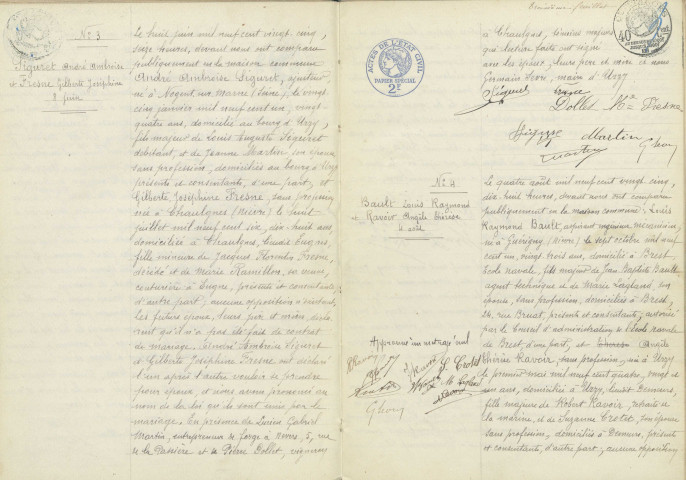 N° 3
Siguret André Ambroise
et Fresne Gilberte Joséphine
8 juin
Le huit juin mil neuf cent vingt cinq,
seize heures, devant nous ont comparu
publiquement en la maison commune
André Ambroise Siguret, ajusteur
né à Nogent sur Marne (Seine), le vingt-
cinq janvier mil neuf cent un, vingt-
quatre ans, domicilié au bourg d'Urzy,
fils majeur de Louis Auguste Siguret
débitant, et de Jeanne Martin son épouse
sans profession, domiciliés au bourg d'Urzy
présents et consentants, d'une part, et
Gilberte Joséphine Fresne, sans profession
née à Chaulgnes (Nièvre) le huit
juillet mil neuf cent six, dix-huit ans,
domiciliée à Chaulgnes,
fille mineure de Jacques Fresne,
décédé et de Marie Ramillon, sa veuve,
couturière à présente et consentante
d'autre part; aucune opposition n'existant,
les futurs époux, leurs père et mère, décla-
rent qu'il n'a pas été fait de contrat
de mariage. André Ambroise Siguret
et Gilberte Joséphine Fresne ont déclaré
l'un après l'autre vouloir se prendre
pour époux, et nous avons prononcé au
nom de la loi qu'ils sont unis par le
mariage. En présence de Lucien Gabriel
Martin, entrepreneur de forge à 5, rue
de la et de Pierre Dollet, vigneron
à Chaulgnes, témoins majeurs
qui lecture faite ont signé
avec les époux, leurs père et mère et nous
Germain maire d'Urzy
Siguret Fresne
Dollet Me Fresne
Martin
ACTES DE L'ETAT CIVIL
PAPIER SPECIAL
2F
40
N° 4
Bault Louis Raymond
et Ravoir Angèle Thérèse
4 août
Le quatre août mil neuf cent vingt cinq,
dix huit heures, devant nous ont comparu
publiquement en la maison commune: Louis
Raymond Bault, aspirant ingénieur mécanicien,
né à Guérigny (Nièvre) le sept octobre mil neuf
cent un, vingt trois ans, domicilié à Brest
Ecole navale, fils majeur de Jean Baptiste Bault
agent technique et de Marie son
épouse, sans profession, domiciliés à Brest,
24, rue Bruat, présents et consentants; autorisé
par le Conseil d'administration de l'école navale
de Brest d'une part, et Angèle
Thérèse Ravoir, sans profession, née à Urzy
le premier mai mil neuf cent quatre, vingt et
un ans, domiciliée à Urzy,
fille majeure de Robert Ravoir, retraité de
la marine, et de Suzanne Crotet, son épouse
sans profession, domiciliés à Demeurs, présents
et consentants, d'autre part; aucune opposition
Approuvé un mot rayé nul